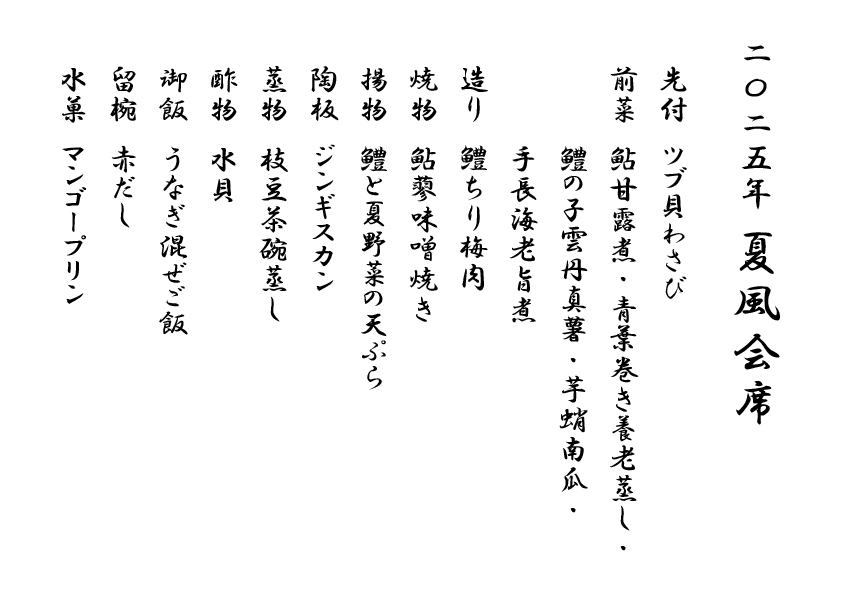 二〇二五年 夏風会席
先付 ツブ貝わさび
前菜 鮎甘露煮・青葉巻き養老蒸し・
鱧の子雲丹真薯・芋蛸南瓜・
手長海老旨煮
造り 鱧ちり梅肉
焼物 鮎蓼味噌焼き
揚物 鱧と夏野菜の天ぷら
陶板 ジンギスカン
蒸物 枝豆茶碗蒸し
酢物 水貝
御飯 うなぎ混ぜご飯
留椀 赤だし
水菓 マンゴープリン